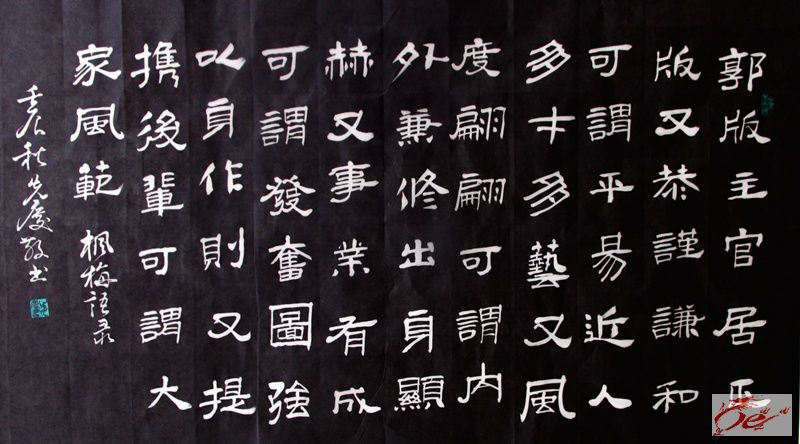 郭版主官居正
版又恭謹謙和
可謂平易近人
多才多藝又風
度翩翩可謂内
外兼修出身顯
赫又事業有成
可謂發奮圖強
以身作則又提
携後輩可謂大
家風範 楓梅語录
壬辰秋先慶敬书